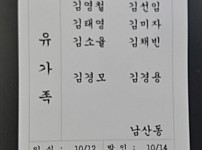 김영철 김선임
김태영 김미자
유가족
김소율 김채빈
김경모 김경용
남산동
일시: 10/12 발인: 10/14